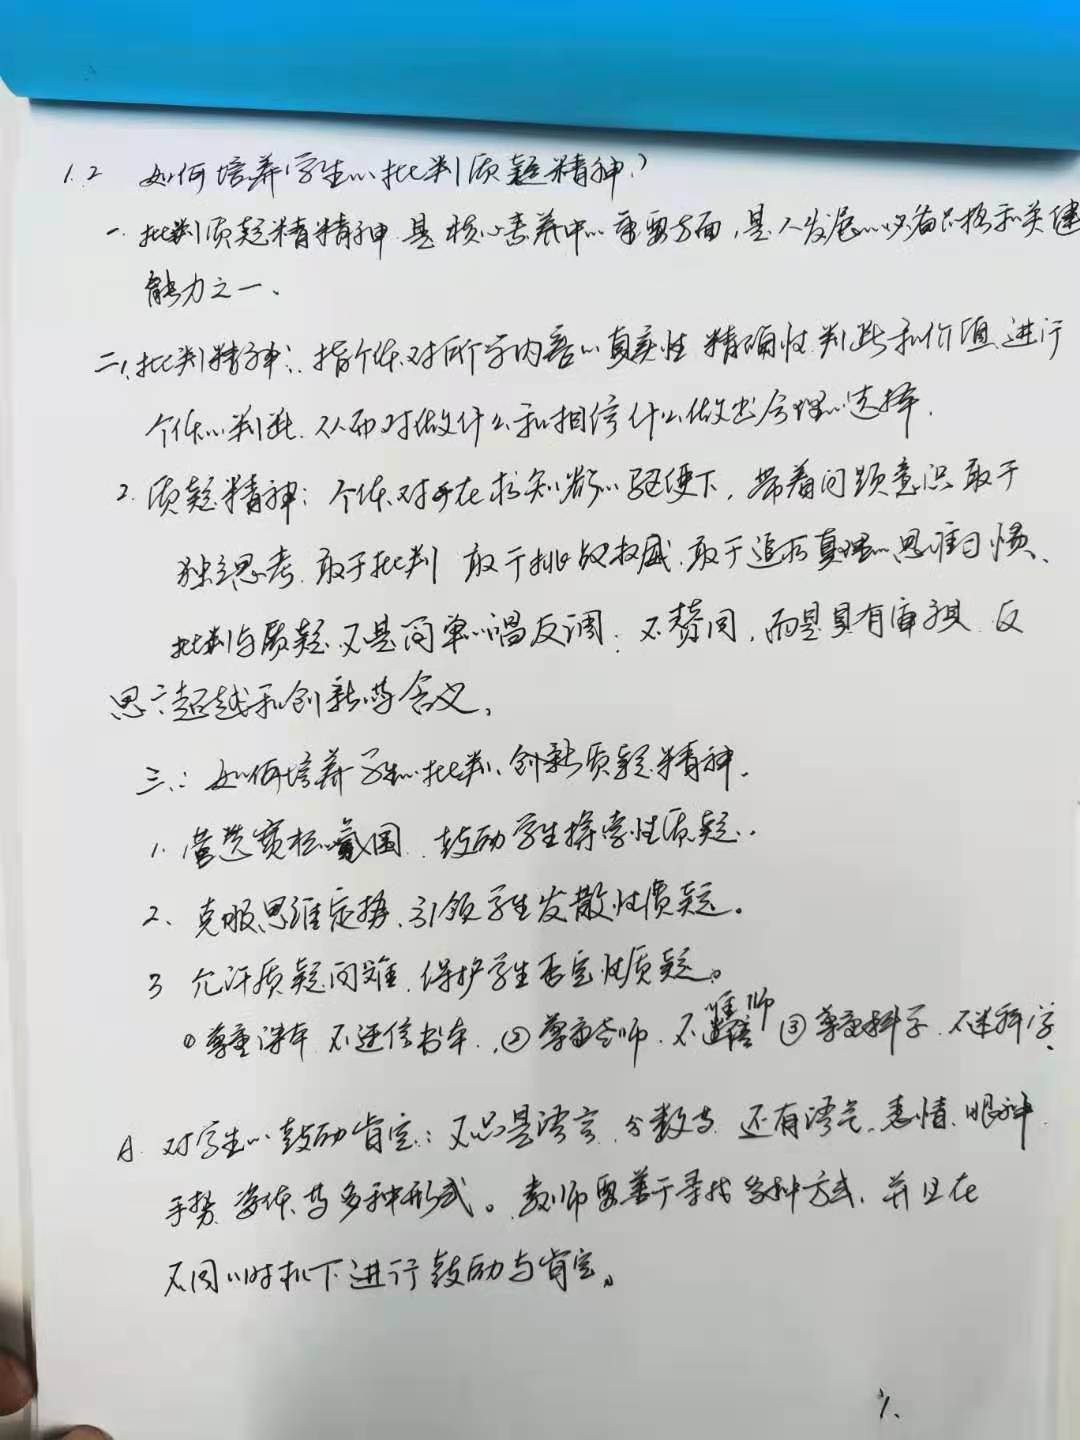 1.2 如何培养学生的批判质疑精神?
一. 批判质疑精精神是核心素养中的重要方面,是人发展的必备品格和关键
能力之一、
二、1、批判精神:指个体对所学内容的真实性 精确性 判断和价值进行
个体的判断,从而对做什么和相信什么做出合理的选择.
2. 质疑精神:个体对在求知欲的驱使下,带着问题意识敢于
独立思考,敢于批判 敢于挑战权威,敢于追求真理的思维习惯、
批判与质疑不是简单的唱反调,不赞同,而是具有审视、反
思、超越和创新等含义、
三、:如何培养学生的批判、创新质疑精神.
1. 营造宽松的氛围,鼓励学生探索性质疑..
2、克服思维定势,引领学生发散性质疑。
3 允许质疑问难,保护学生否定性质疑。
①尊重课本 不迷信书本、②尊重老师.不唯师 ③尊重科学.不迷科学、
A. 对学生的鼓励肯定:不只是语言、分数等,还有语气、表情、眼神、
手势、姿体等多种形式。教师要善于寻找多种方式,并且在
不同的时机下进行鼓励与肯定。